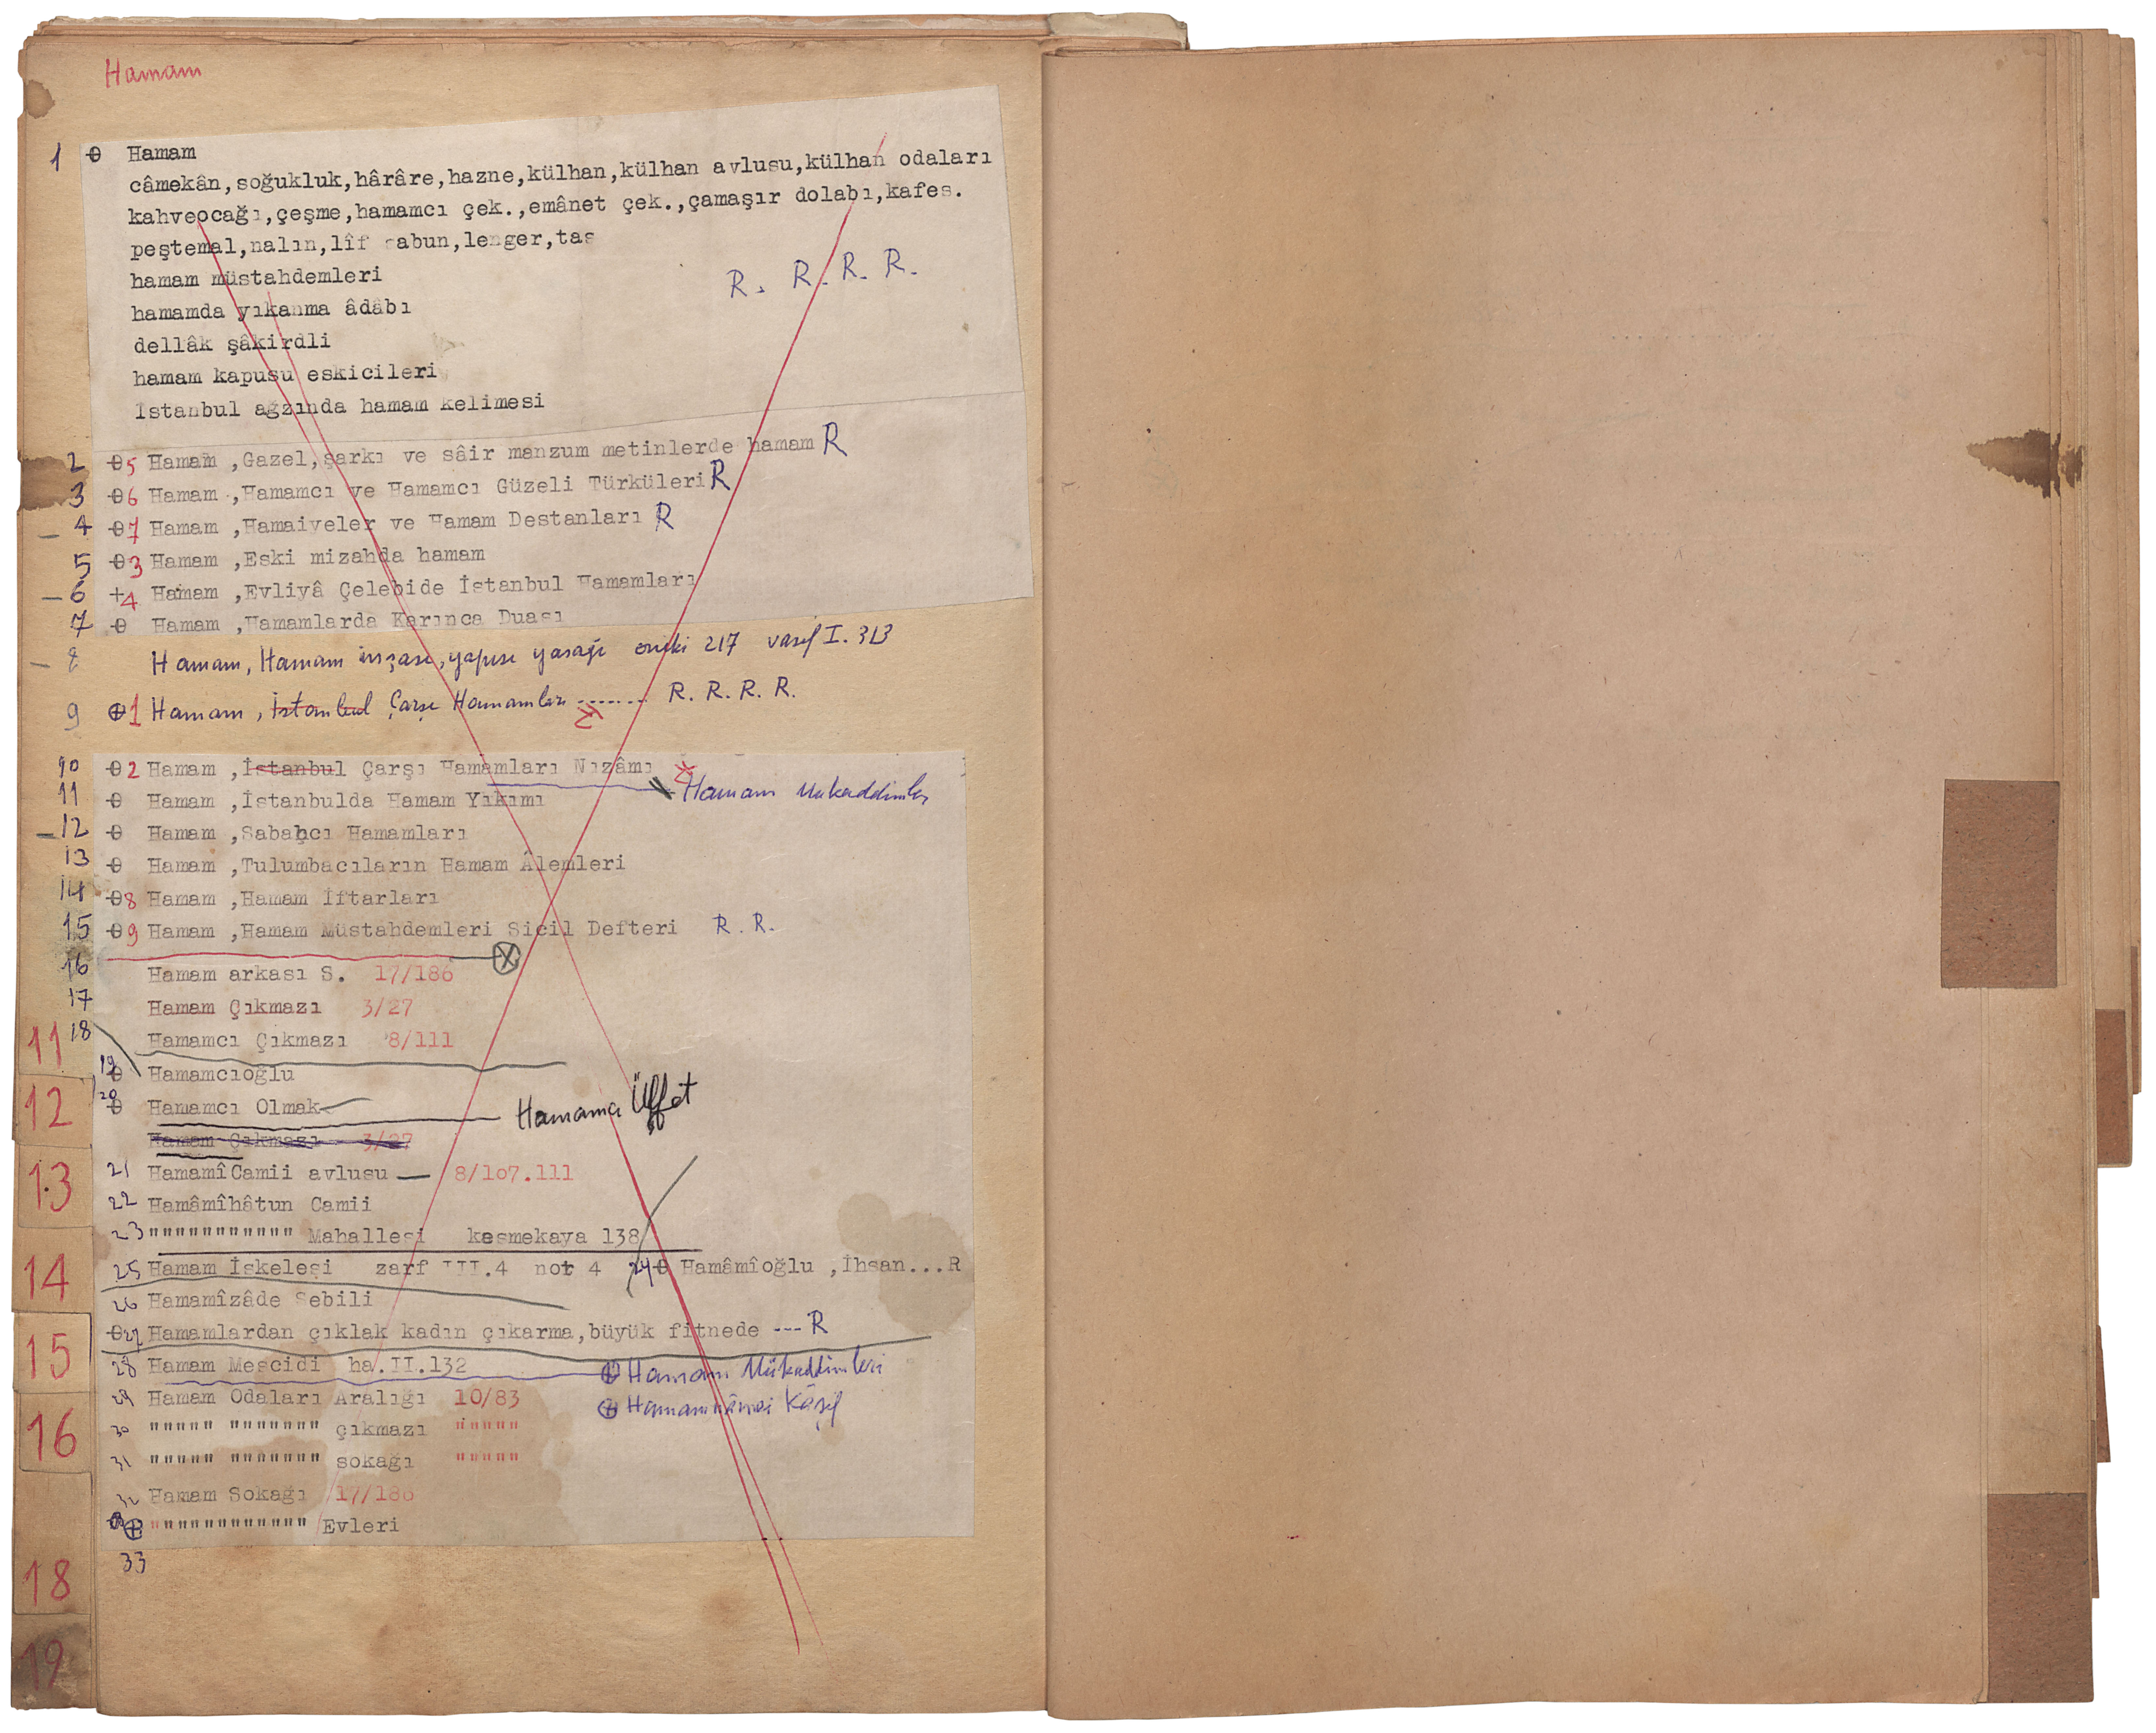 Hamam
1 Ɵ Hamam
câmekân,soğukluk,hârâre,hazne,külhan,külhan avlusu,külhan odaları
kahveocağı,çeşme,hamamcı çek.,emânet çek.,çamaşır dolabı,kafes.
peştemal,nalın,lîf sabun,lenger,tas
hamam müstahdemleri
R. R. R. R.
hamamda yıkanma âdâbı
dellâk şâkirdli
hamam kapusu eskicileri
İstanbul ağzında hamam kelimesi
2 Ɵ5 Hamam ,Gazel,şarkı ve sâir manzum metinlerde hamam R
3 Ɵ6 Hamam ,Hamamcı ve Hamamcı Güzeli Türküleri R
4 Ɵ7 Hamam ,Hamaiyeler ve Hamam Destanları R
5 Ɵ3 Hamam ,Eski mizahda hamam
6 +4 Hamam ,Evliyâ Çelebide İstanbul Hamamları
7 Ɵ Hamam ,Hamamlarda Karınca Duası
8 Hamam, Hamam inşası, yapısı yasağı oniki 217 vasıf I. 313
9 ⊕1 Hamam, İstanbul Çarşı Hamamları ....... R. R. R. R.
10 Ɵ2 Hamam ,İstanbul Çarşı Hamamları Nizâmı
11 Ɵ Hamam ,İstanbulda Hamam Yıkımı Hamam Mukaddimler
12 Ɵ Hamam ,Sabahcı Hamamları
13 Ɵ Hamam ,Tulumbacıların Hamam Âlemleri
14 Ɵ8 Hamam ,Hamam İftarları
15 Ɵ9 Hamam ,Hamam Müstahdemleri Sicil Defteri R. R.
16 Hamam arkası S. 17/186
17 Hamam Çıkmazı 3/27
11 18 Hamamcı Çıkmazı 8/111
19 Ɵ Hamamcıoğlu
12 20 Ɵ Hamamcı Olmak Hamamcı Ülfet
Hamam Çıkmazı 3/27
13 21 HamamîCamii avlusu — 8/107.111
22 Hamâmîhâtun Camii
23 """"""""""" Mahallesi kesmekaya 138
14 25 Hamam İskelesi zarf III.4 not 4 24 Ɵ Hamâmîoğlu ,İhsan...R
26 Hamamîzâde Sebili
Ɵ27 Hamamlardan çıklak kadın çıkarma,büyük fitnede --- R
15 28 Hamam Mescidi ha.II.132 ⊕ Hamam Mükaddimleri
29 Hamam Odaları Aralığı 10/83 ⊕ Hamamnâmei Kâşif
16 30 """"" """"""" çıkmazı """""
31 """"" """"""" sokağı """""
32 Hamam Sokağı 17/186
⊕ """""""""""" Evleri
33
18
19